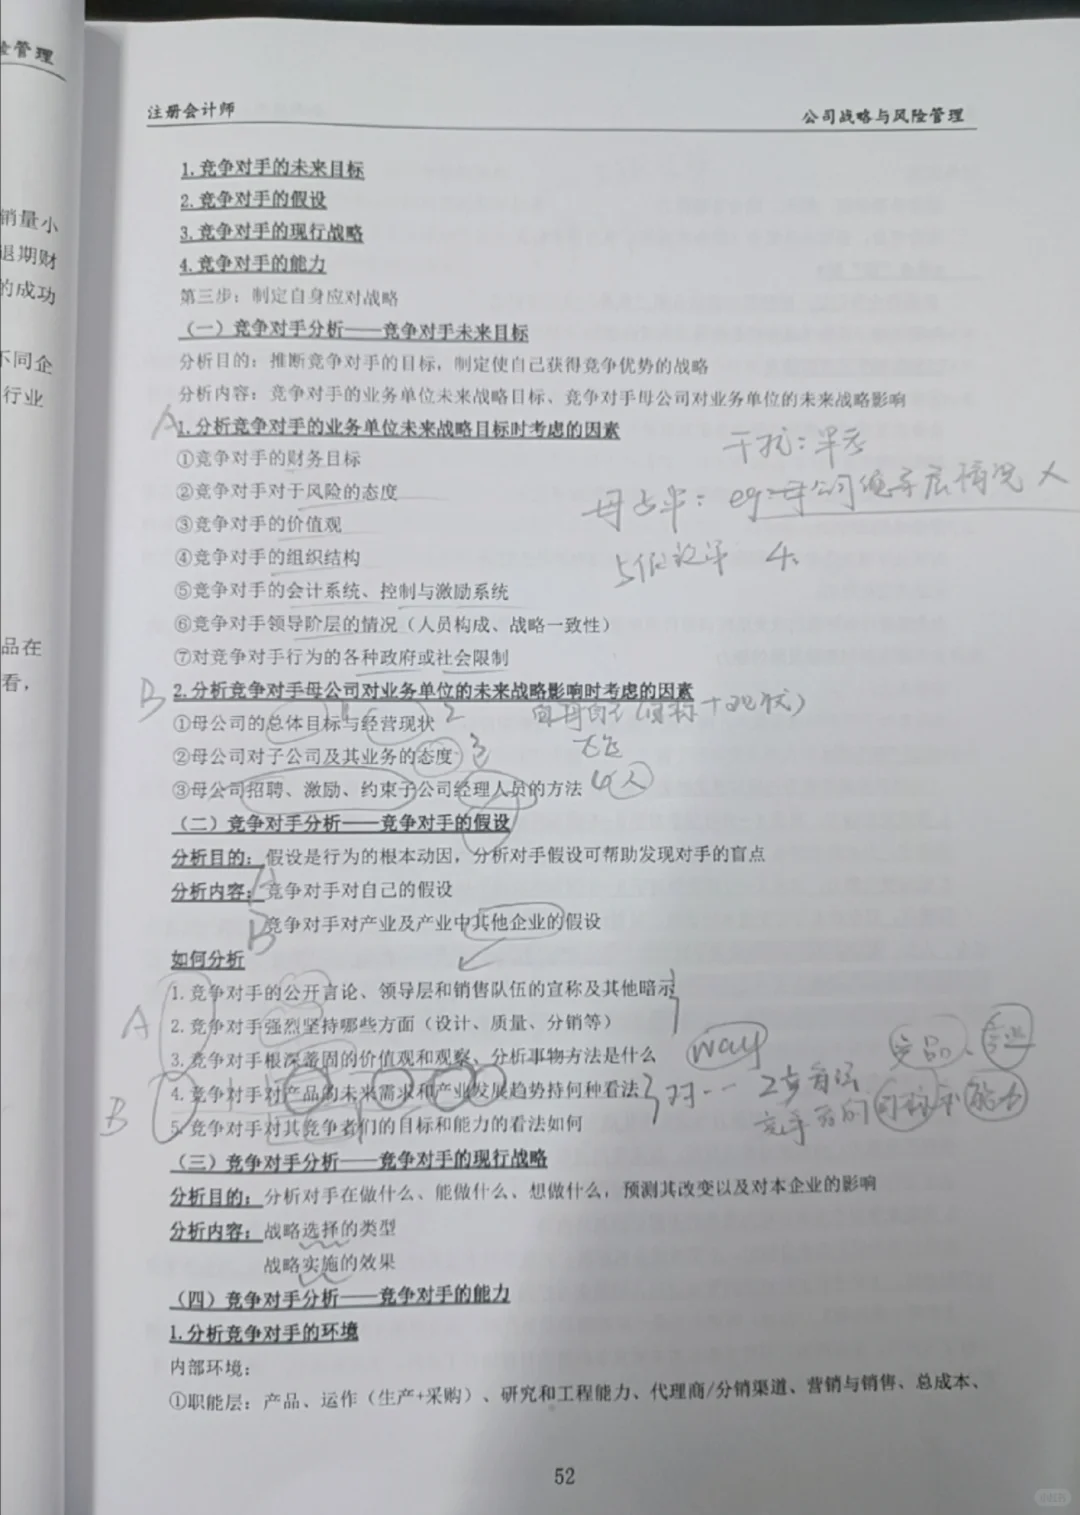 险管理
销量小
退期财
的成功
不同企
行业
品在
看，
注册会计师
公司战略与风险管理
1.竞争对手的未来目标
2.竞争对手的假设
3.竞争对手的现行战略
4.竞争对手的能力
第三步：制定自身应对战略
（一）竞争对手分析——竞争对手未来目标
分析目的：推断竞争对手的目标，制定使自己获得竞争优势的战略
分析内容：竞争对手的业务单位未来战略目标、竞争对手母公司对业务单位的未来战略影响
A 1.分析竞争对手的业务单位未来战略目标时考虑的因素
①竞争对手的财务目标
②竞争对手对于风险的态度
母公司领导层情况
③竞争对手的价值观
④竞争对手的组织结构
⑤竞争对手的会计系统、控制与激励系统
⑥竞争对手领导阶层的情况（人员构成、战略一致性）
⑦对竞争对手行为的各种政府或社会限制
B 2.分析竞争对手母公司对业务单位的未来战略影响时考虑的因素
①母公司的总体目标与经营现状 2
②母公司对子公司及其业务的态度 3
③母公司招聘、激励、约束子公司经理人员的方法 4 人
（二）竞争对手分析——竞争对手的假设
分析目的：假设是行为的根本动因，分析对手假设可帮助发现对手的盲点
分析内容：A 竞争对手对自己的假设
B 竞争对手对产业及产业中其他企业的假设
如何分析
1.竞争对手的公开言论、领导层和销售队伍的宣称及其他暗示
A 2.竞争对手强烈坚持哪些方面（设计、质量、分销等）
3.竞争对手根深蒂固的价值观和观察、分析事物方法是什么 way 产品、产业
4.竞争对手对产品的未来需求和产业发展趋势持何种看法 对
B 5.竞争对手对其竞争者们的目标和能力的看法如何 竞争者的目标和能力
（三）竞争对手分析——竞争对手的现行战略
分析目的：分析对手在做什么、能做什么、想做什么，预测其改变以及对本企业的影响
分析内容：战略选择的类型
战略实施的效果
（四）竞争对手分析——竞争对手的能力
1.分析竞争对手的环境
内部环境：
①职能层：产品、运作（生产+采购）、研究和工程能力、代理商/分销渠道、营销与销售、总成本、
52